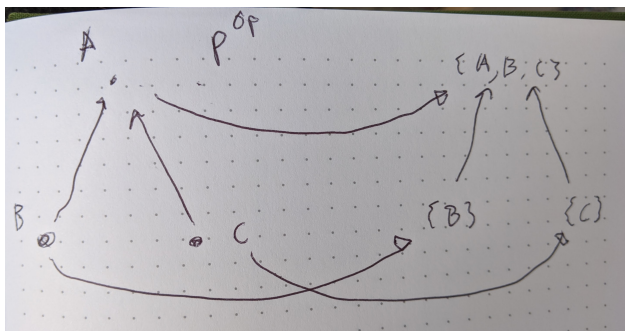 A P^op
{A, B, C}
B C {B} {C}